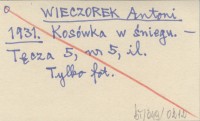 WIECZOREK Antoni
1931. Kosówka w śniegu. –
Tęcza 5, nr 5, il.
Tylko fot.